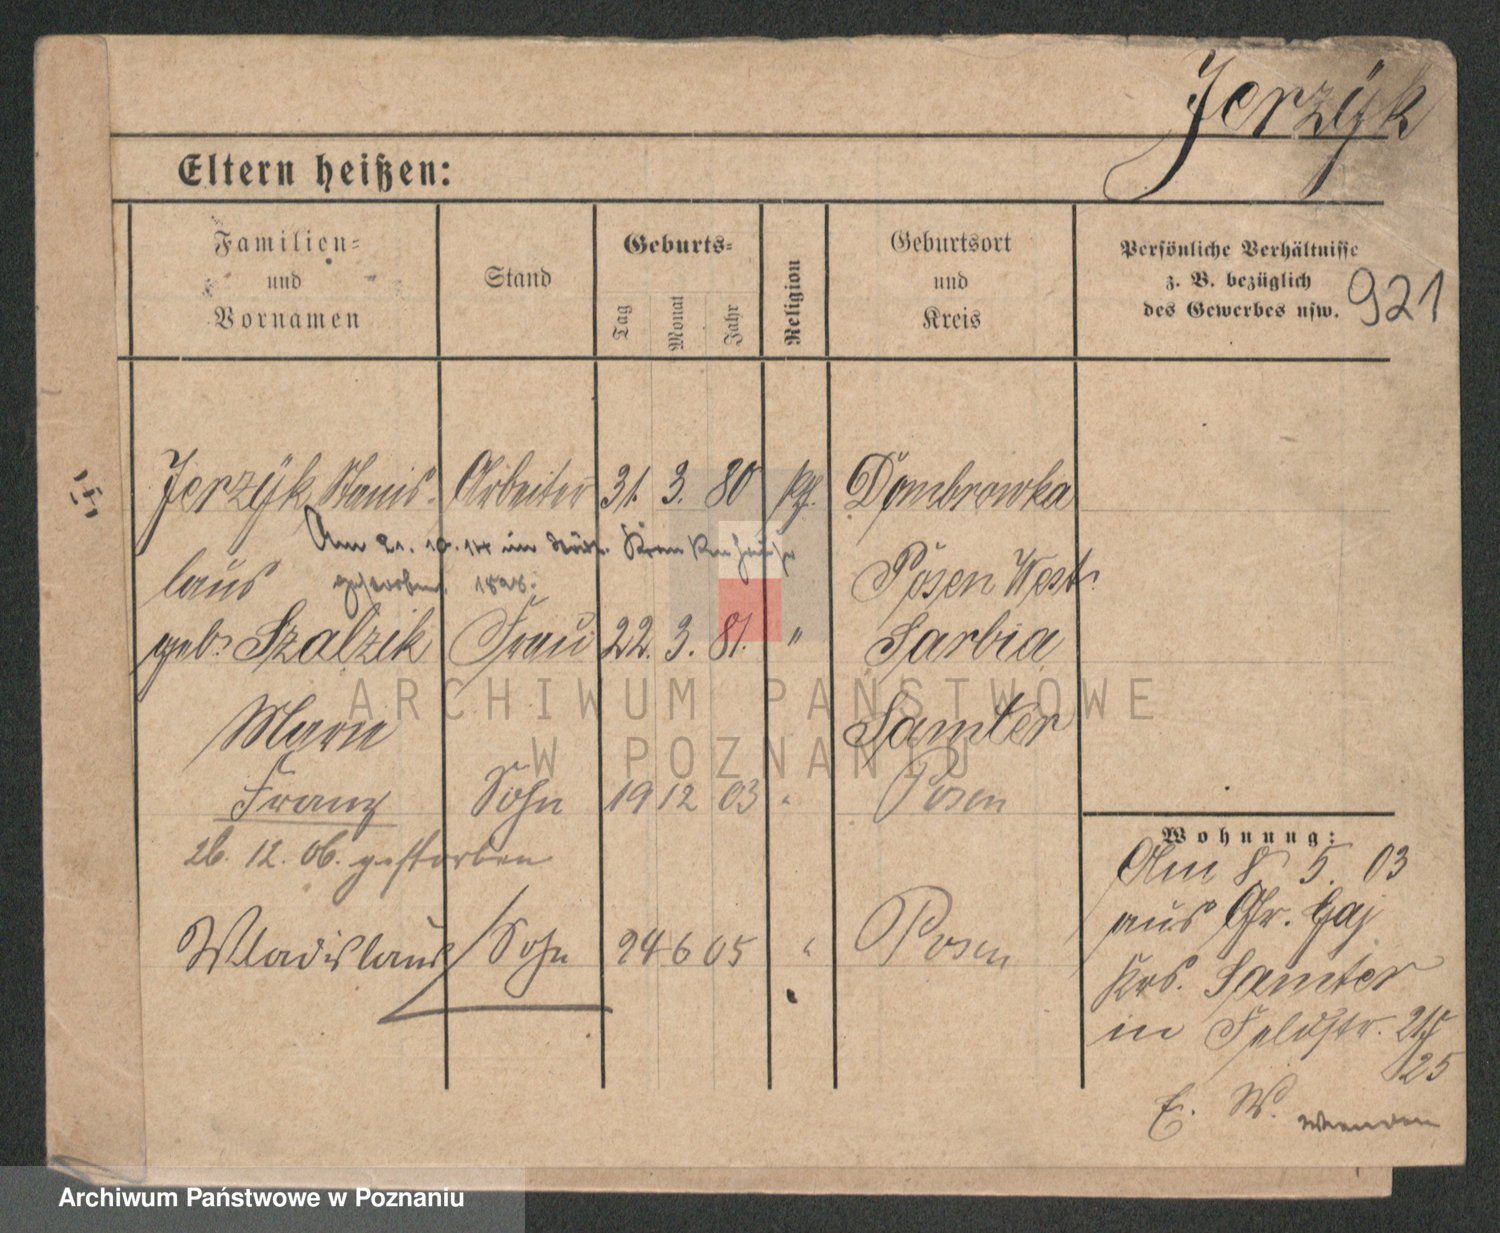 Jerzÿk
Eltern heißen:
Familien-
und
Vornamen
Stand
Geburts-
Tag
Monat
Jahr
Religion
Geburtsort
und
Kreis
Persönliche Verhältnisse
z. B. bezüglich
des Gewerbes usw.
921
Jerzÿk Stanis- Arbeiter 31. 3. 80 kt. Dombrowka
Am 21. 10. 14 im Städt. Krankenhause
laus gestorben. 1828. Posen West.
geb. Szalzik Frau 22. 3. 81. " Sarbia
Marie Samter
Franz Sohn 19 12 03 " Posen
26. 12. 06. gestorben
Wladislaus Sohn 24 6 05 " Posen
Wohnung:
Am 8 5. 03
aus Gr. Gaj
Krs. Samter
in Feldstr.
25
E. W. wenden
ARCHIWUM PAŃSTWOWE
W POZNANIU
Archiwum Państwowe w Poznaniu